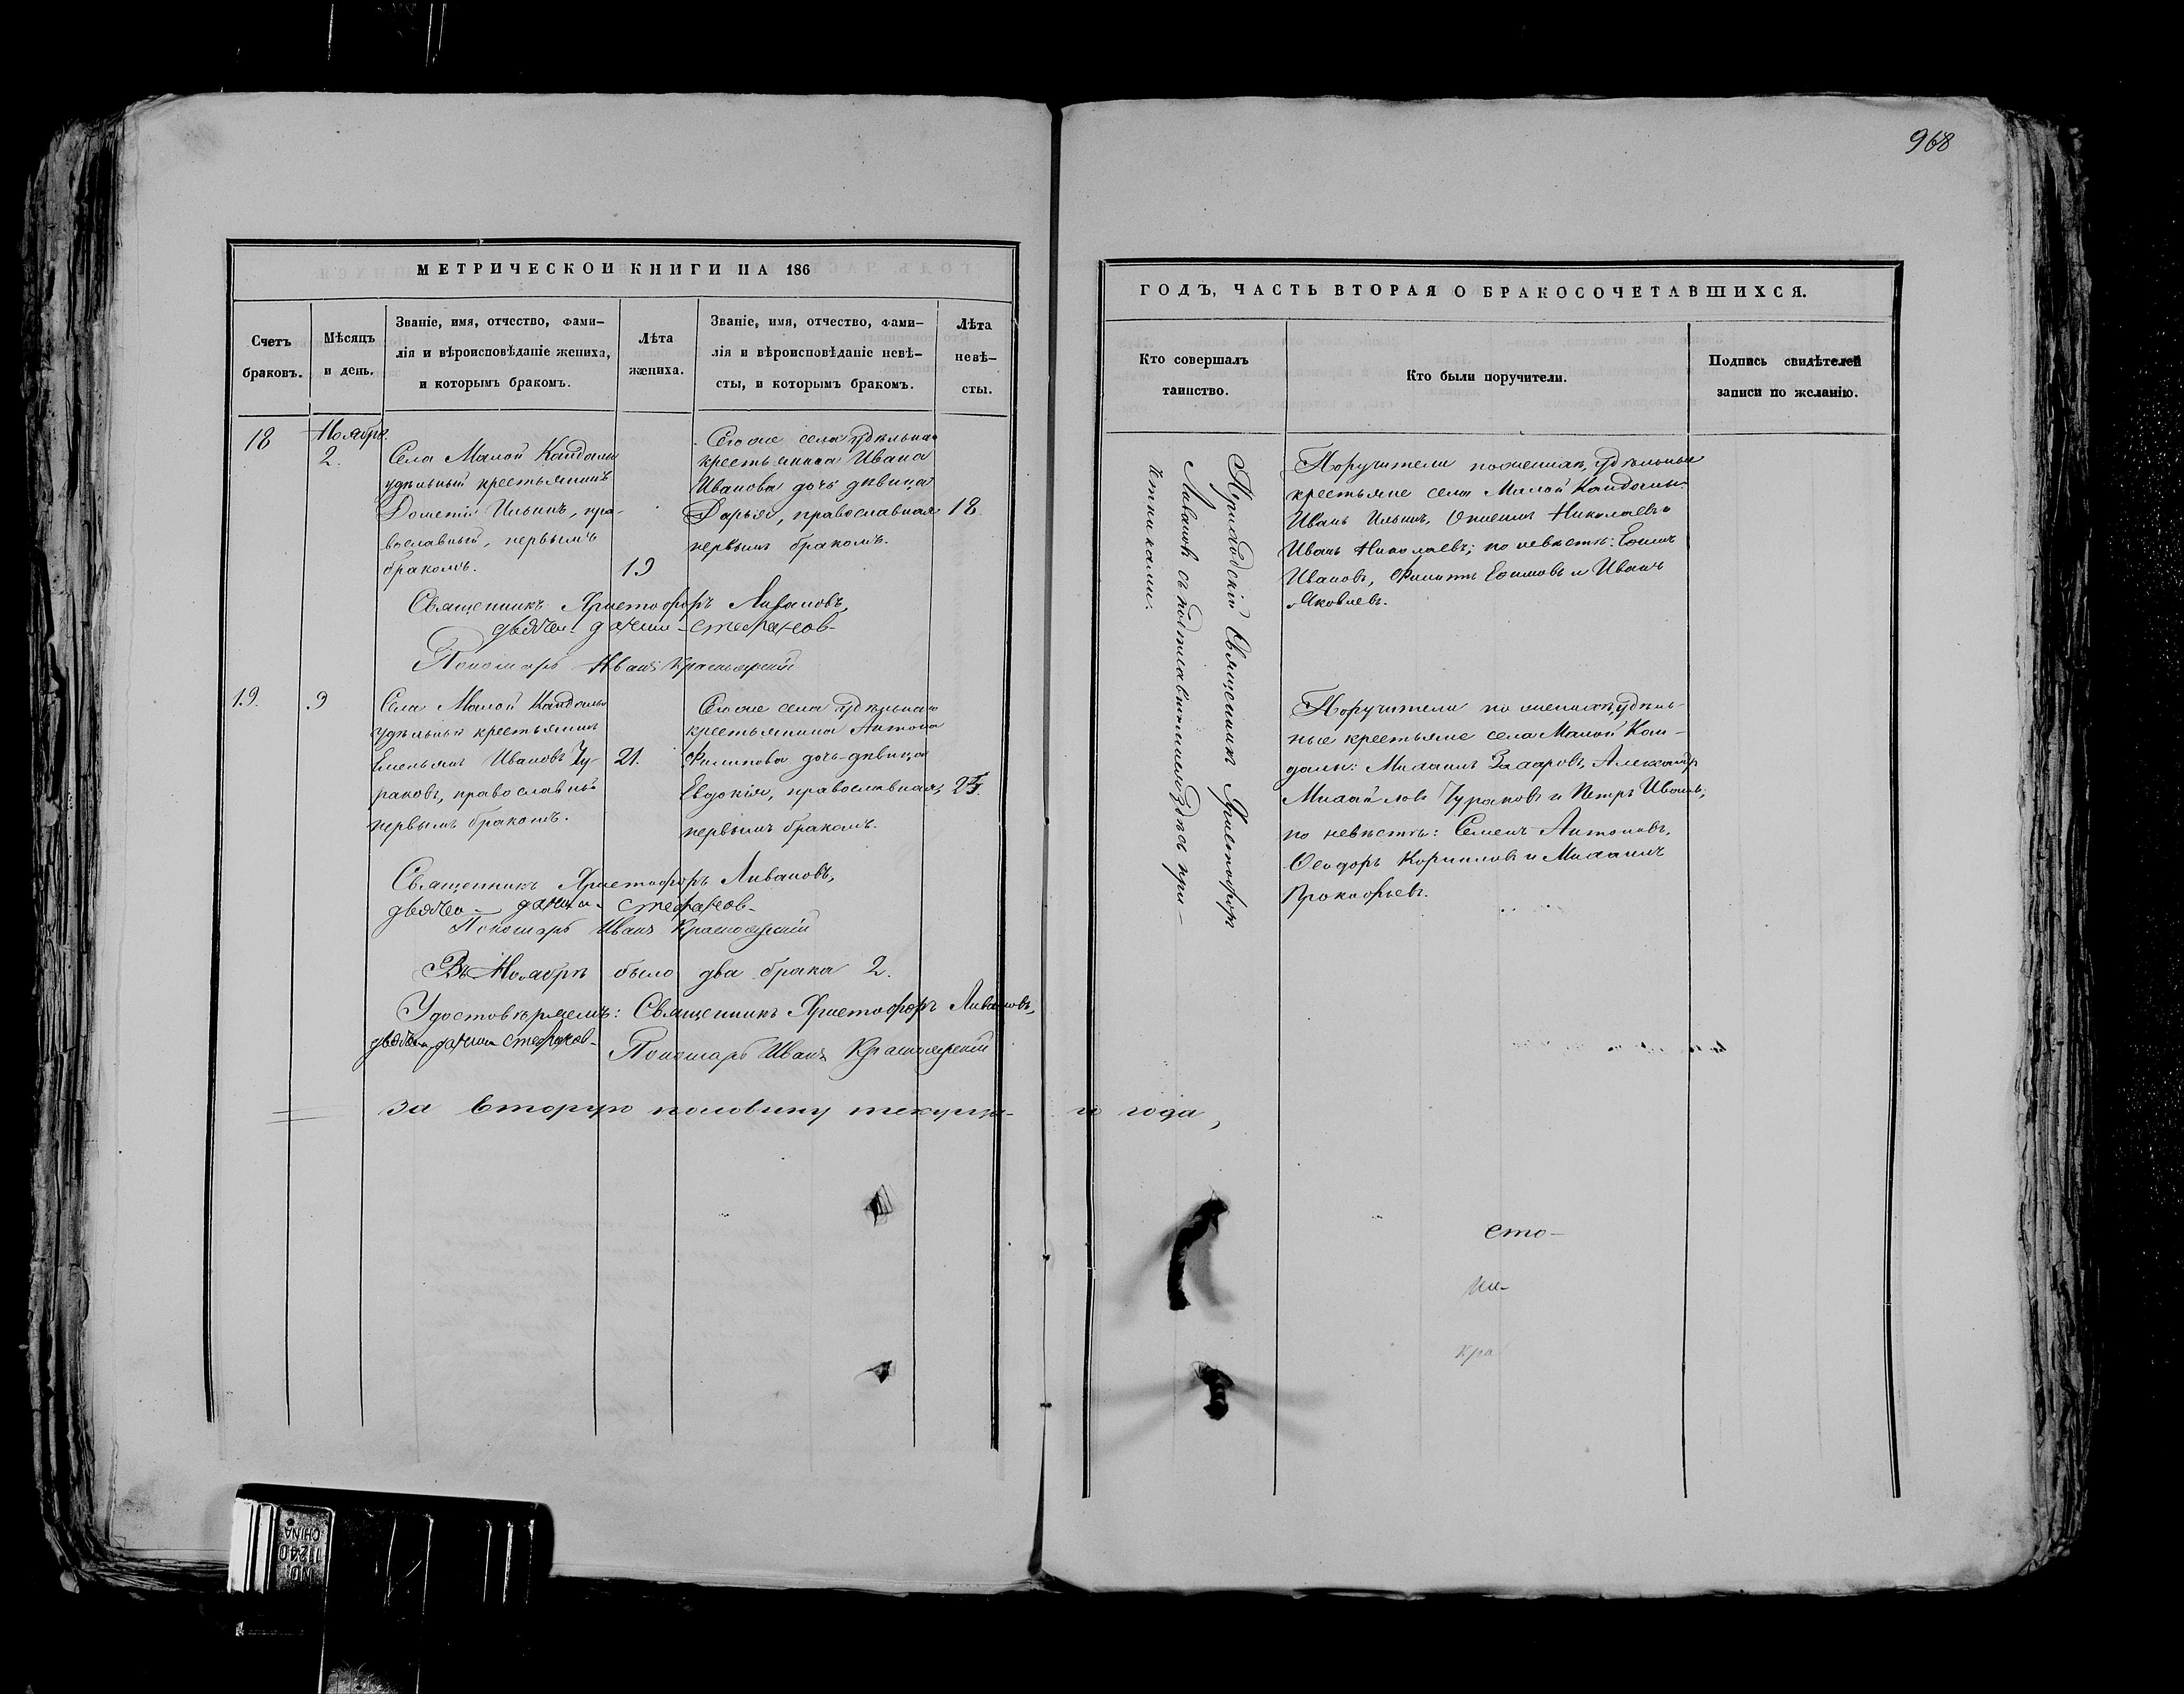 968
МЕТРИЧЕСКОЙ КНИГИ НА 186
Счетъ
браковъ.
Мѣсяцъ
и день.
Званіе, имя, отчество, фами–
лія и вѣроисповѣданіе жениха,
и которымъ бракомъ.
Лѣта
жениха.
Званіе, имя, отчество, фами–
лія и вѣроисповѣданіе невѣ–
сты, и которымъ бракомъ.
Лѣта
невѣ–
сты.
18
Ноябрь.
2.
Села Малой Кандалы
удѣльный крестьянинъ
Дометій Ильинъ, пра-
вославный, первымъ
бракомъ.
19
Тогоже села удѣльнаго
крестьянина Ивана
Иванова дочь дѣвица
Дарья, православная
первымъ бракомъ.
18.
Священникъ Христофоръ Ливановъ,
Стефанов
Пономарь Иванъ Красноярскій
19.
9
Села Малой Кандалы
удѣльный крестьянинъ
Емельянъ Ивановъ Чу-
раковъ, православный
первымъ бракомъ.
21.
Тогоже села удѣльнаго
крестьянина Антона
Филипова дочь дѣвица
Евдокія, православная,
первымъ бракомъ.
Священникъ Христофоръ Ливановъ,
Стефанов
Пономарь Иванъ Красноярскій
Въ Ноябрѣ было два брака 2.
Удостовѣряемъ: Священникъ Христофоръ Ливановъ,
Стефанов
Пономарь Иванъ Красноярскій
за вторую половину текуща-
го года,
ГОДЪ, ЧАСТЬ ВТОРАЯ О БРАКОСОЧЕТАВШИХСЯ.
Кто совершалъ
таинство.
Кто были поручители.
Подпись свидѣтелей
записи по желанію.
Приходскій Священникъ Христофоръ
Ливановъ съ при-
четниками.
Поручители по женихѣ, удѣльные
крестьяне села Малой Кандалы:
Иванъ Ильинъ, Николаевъ и
Иванъ Николаевъ; по невѣстѣ:
Ивановъ, Филиппъ Ефимовъ и Иванъ
Яковлевъ.
Поручители по женихѣ, удѣль-
ные крестьяне села Малой Кан-
далы: Михаилъ Захаровъ, Александръ
Михайловъ Чураковъ и Петръ Ивановъ;
по невѣстѣ: Семенъ Антоновъ,
Ѳеодоръ Корниловъ и Михаилъ
Прокофьевъ.
сто-
кра